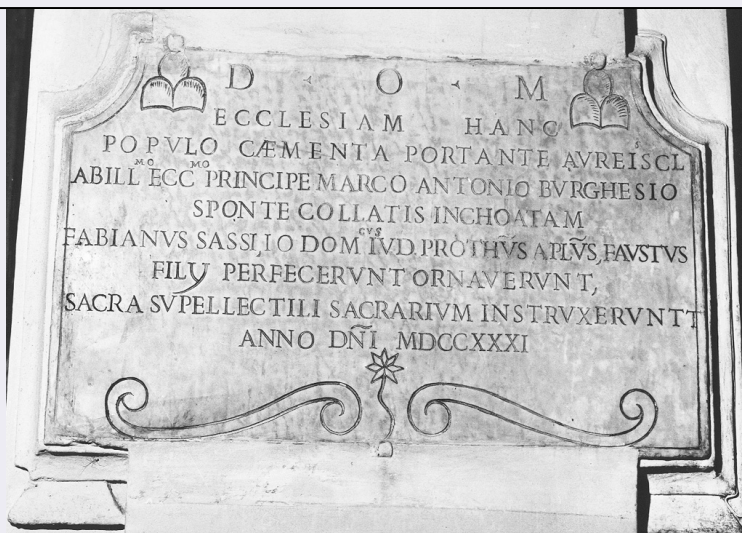 D · O · M
ECCLESIAM HANC
POPVLO CÆMENTA PORTANTE AVREIS CL
ABILL MO ECC MO PRINCIPE MARCO ANTONIO BVRGHESIO
SPONTE COLLATIS INCHOATAM
FABIANVS SASSI, IO DOM CVS IVD. PROTHŨS APLŨS, FAUSTVS
FILIJ PERFECERVNT ORNAVERVNT,
SACRA SVPELLECTILI SACRARIVM INSTRVXERVNTT
ANNO DÑI MDCCXXXI